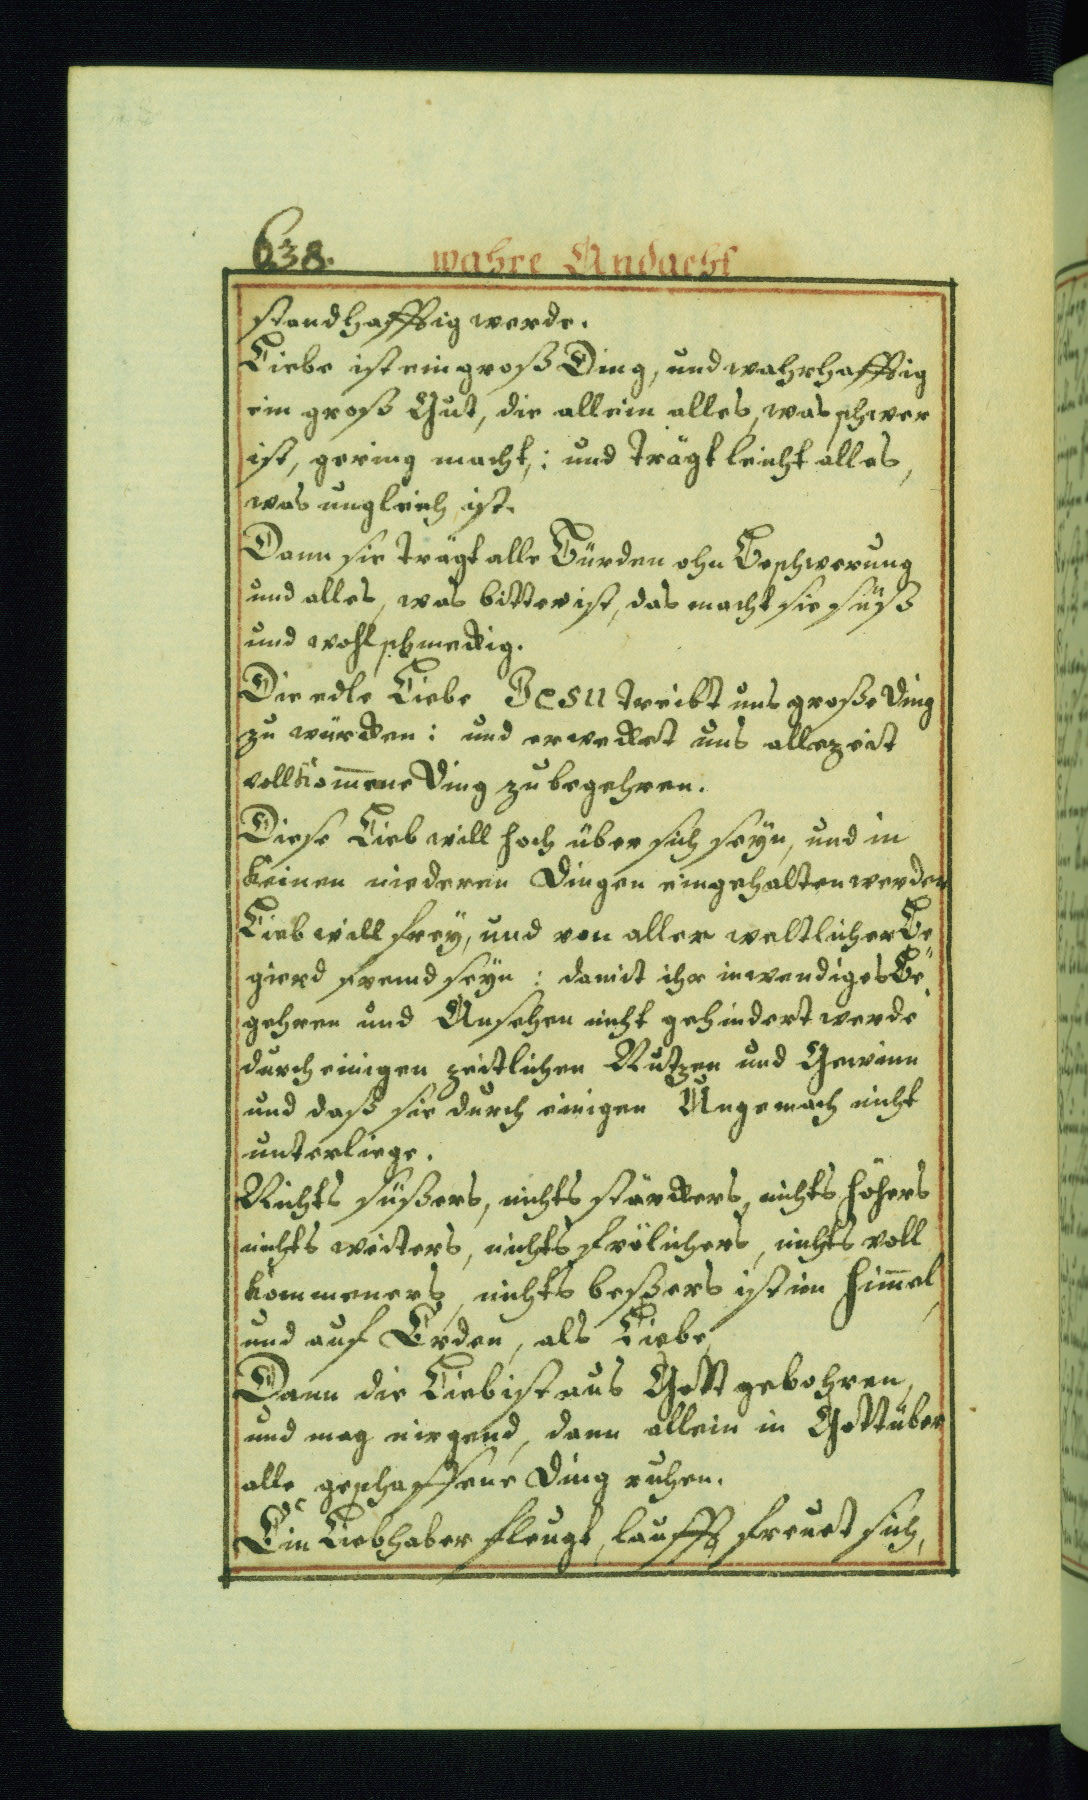 638.
wahre Andacht
standhafftig werde.
Liebe ist ein groß Ding, und wahrhafftig
ein groß Gut, die allein alles, was schwer
ist, gering macht,: und trägt leicht alles,
was ungleich ist.
Dann sie trägt alle Bürden ohn Beschwerung
und alles, was bitter ist, das macht sie süß
und wohlschmeckig.
Die edle Liebe Jesu treibt uns große Ding
zu würcken: und erwecket uns allezeit
vollkom̅ene Ding zu begehren.
Diese Lieb will hoch über sich seyn, und in
keinen niederen Dingen eingehalten werden
Lieb will frey, und von aller weltlicher Be¬
gierd fremd seyn: damit ihr inwendiges Be¬
gehren und Ansehen nicht gehindert werde
durch einigen zeitlichen Nutzen und Gewinn
und daß sie durch einigen Ungemach nicht
unterliege.
Nichts süßers, nichts stärckers, nichts höhers
nichts weiters, nichts frölichers, nichts voll
kommeners, nichts beßers ist im Him̅el,
und auf Erden, als Liebe,
Dann die Lieb ist aus Gott gebohren,
und mag nirgend, dann allein in Gott über
alle geschaffene Ding ruhen.
Ein Liebhaber fleugt, laufft, freuet sich,